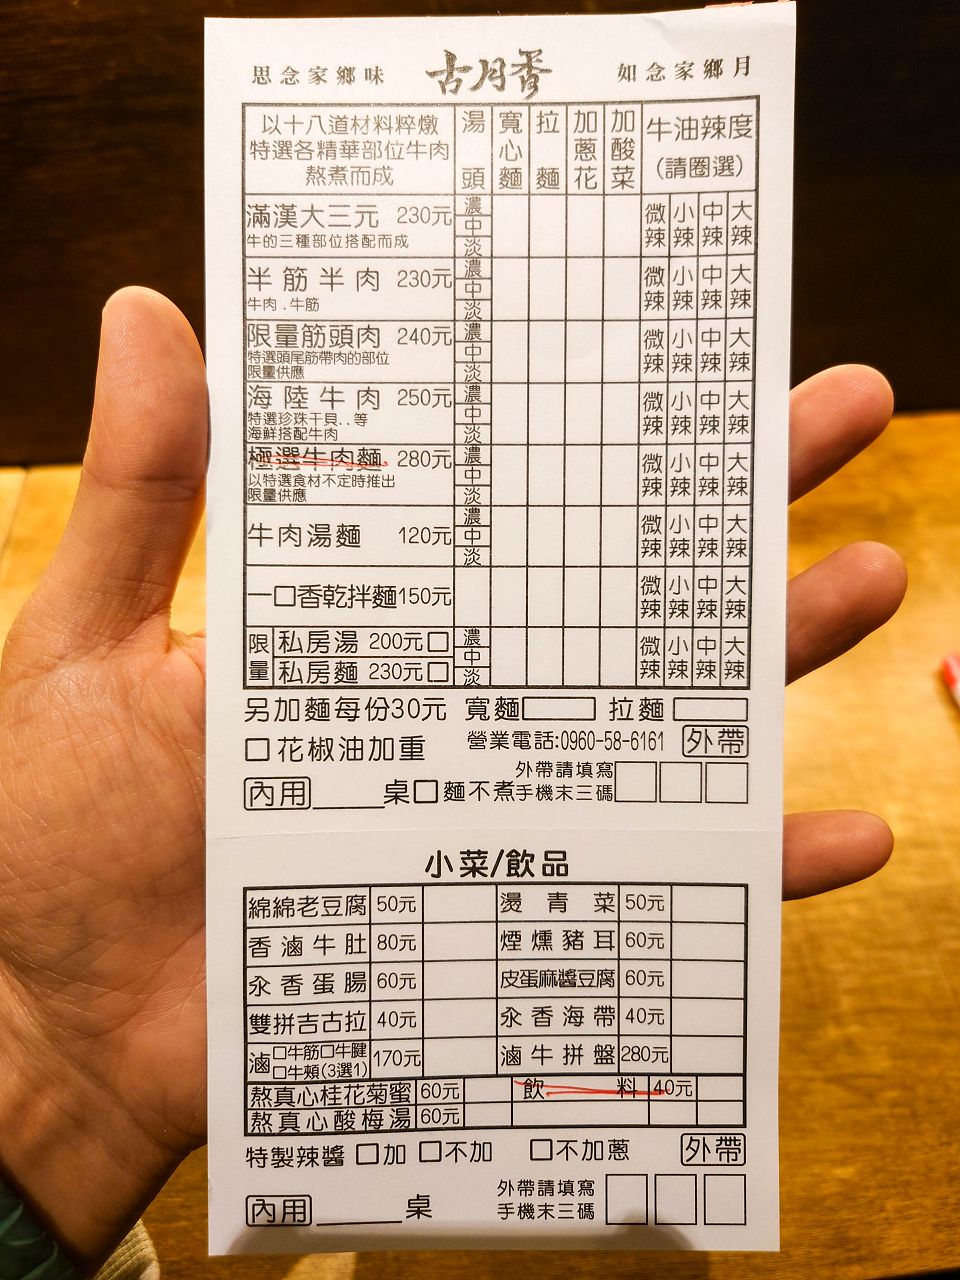 思念家鄉味 古月香 如念家鄉月
以十八道材料粹燉
特選各精華部位牛肉
熬煮而成
湯頭 寬心麵 拉麵 加蔥花 加酸菜 牛油辣度
(請圈選)
滿漢大三元 230元 濃 中 淡 微辣 小辣 中辣 大辣
牛的三種部位搭配而成
半筋半肉 230元 濃 中 淡 微辣 小辣 中辣 大辣
牛肉.牛筋
限量筋頭肉 240元 濃 中 淡 微辣 小辣 中辣 大辣
特選頭尾筋帶肉的部位
限量供應
海陸牛肉 250元 濃 中 淡 微辣 小辣 中辣 大辣
特選珍珠干貝..等
海鮮搭配牛肉
極選牛肉麵 280元 濃 中 淡 微辣 小辣 中辣 大辣
以特選食材不定時推出
限量供應
牛肉湯麵 120元 濃 中 淡 微辣 小辣 中辣 大辣
一口香乾拌麵 150元 微辣 小辣 中辣 大辣
限量 私房湯 200元□ 濃 中 淡 微辣 小辣 中辣 大辣
私房麵 230元□
另加麵每份30元 寬麵 拉麵
□花椒油加重 營業電話:0960-58-6161 外帶
內用____桌□麵不煮 外帶請填寫
手機末三碼
小菜/飲品
綿綿老豆腐 50元 燙青菜 50元
香滷牛肚 80元 煙燻豬耳 60元
汆香蛋腸 60元 皮蛋麻醬豆腐 60元
雙拼吉古拉 40元 汆香海帶 40元
滷 □牛筋□牛腱 170元 滷牛拼盤 280元
□牛頰(3選1)
熬真心桂花菊蜜 60元 飲料 40元
熬真心酸梅湯 60元
特製辣醬 □加 □不加 □不加蔥 外帶
內用____桌 外帶請填寫
手機末三碼